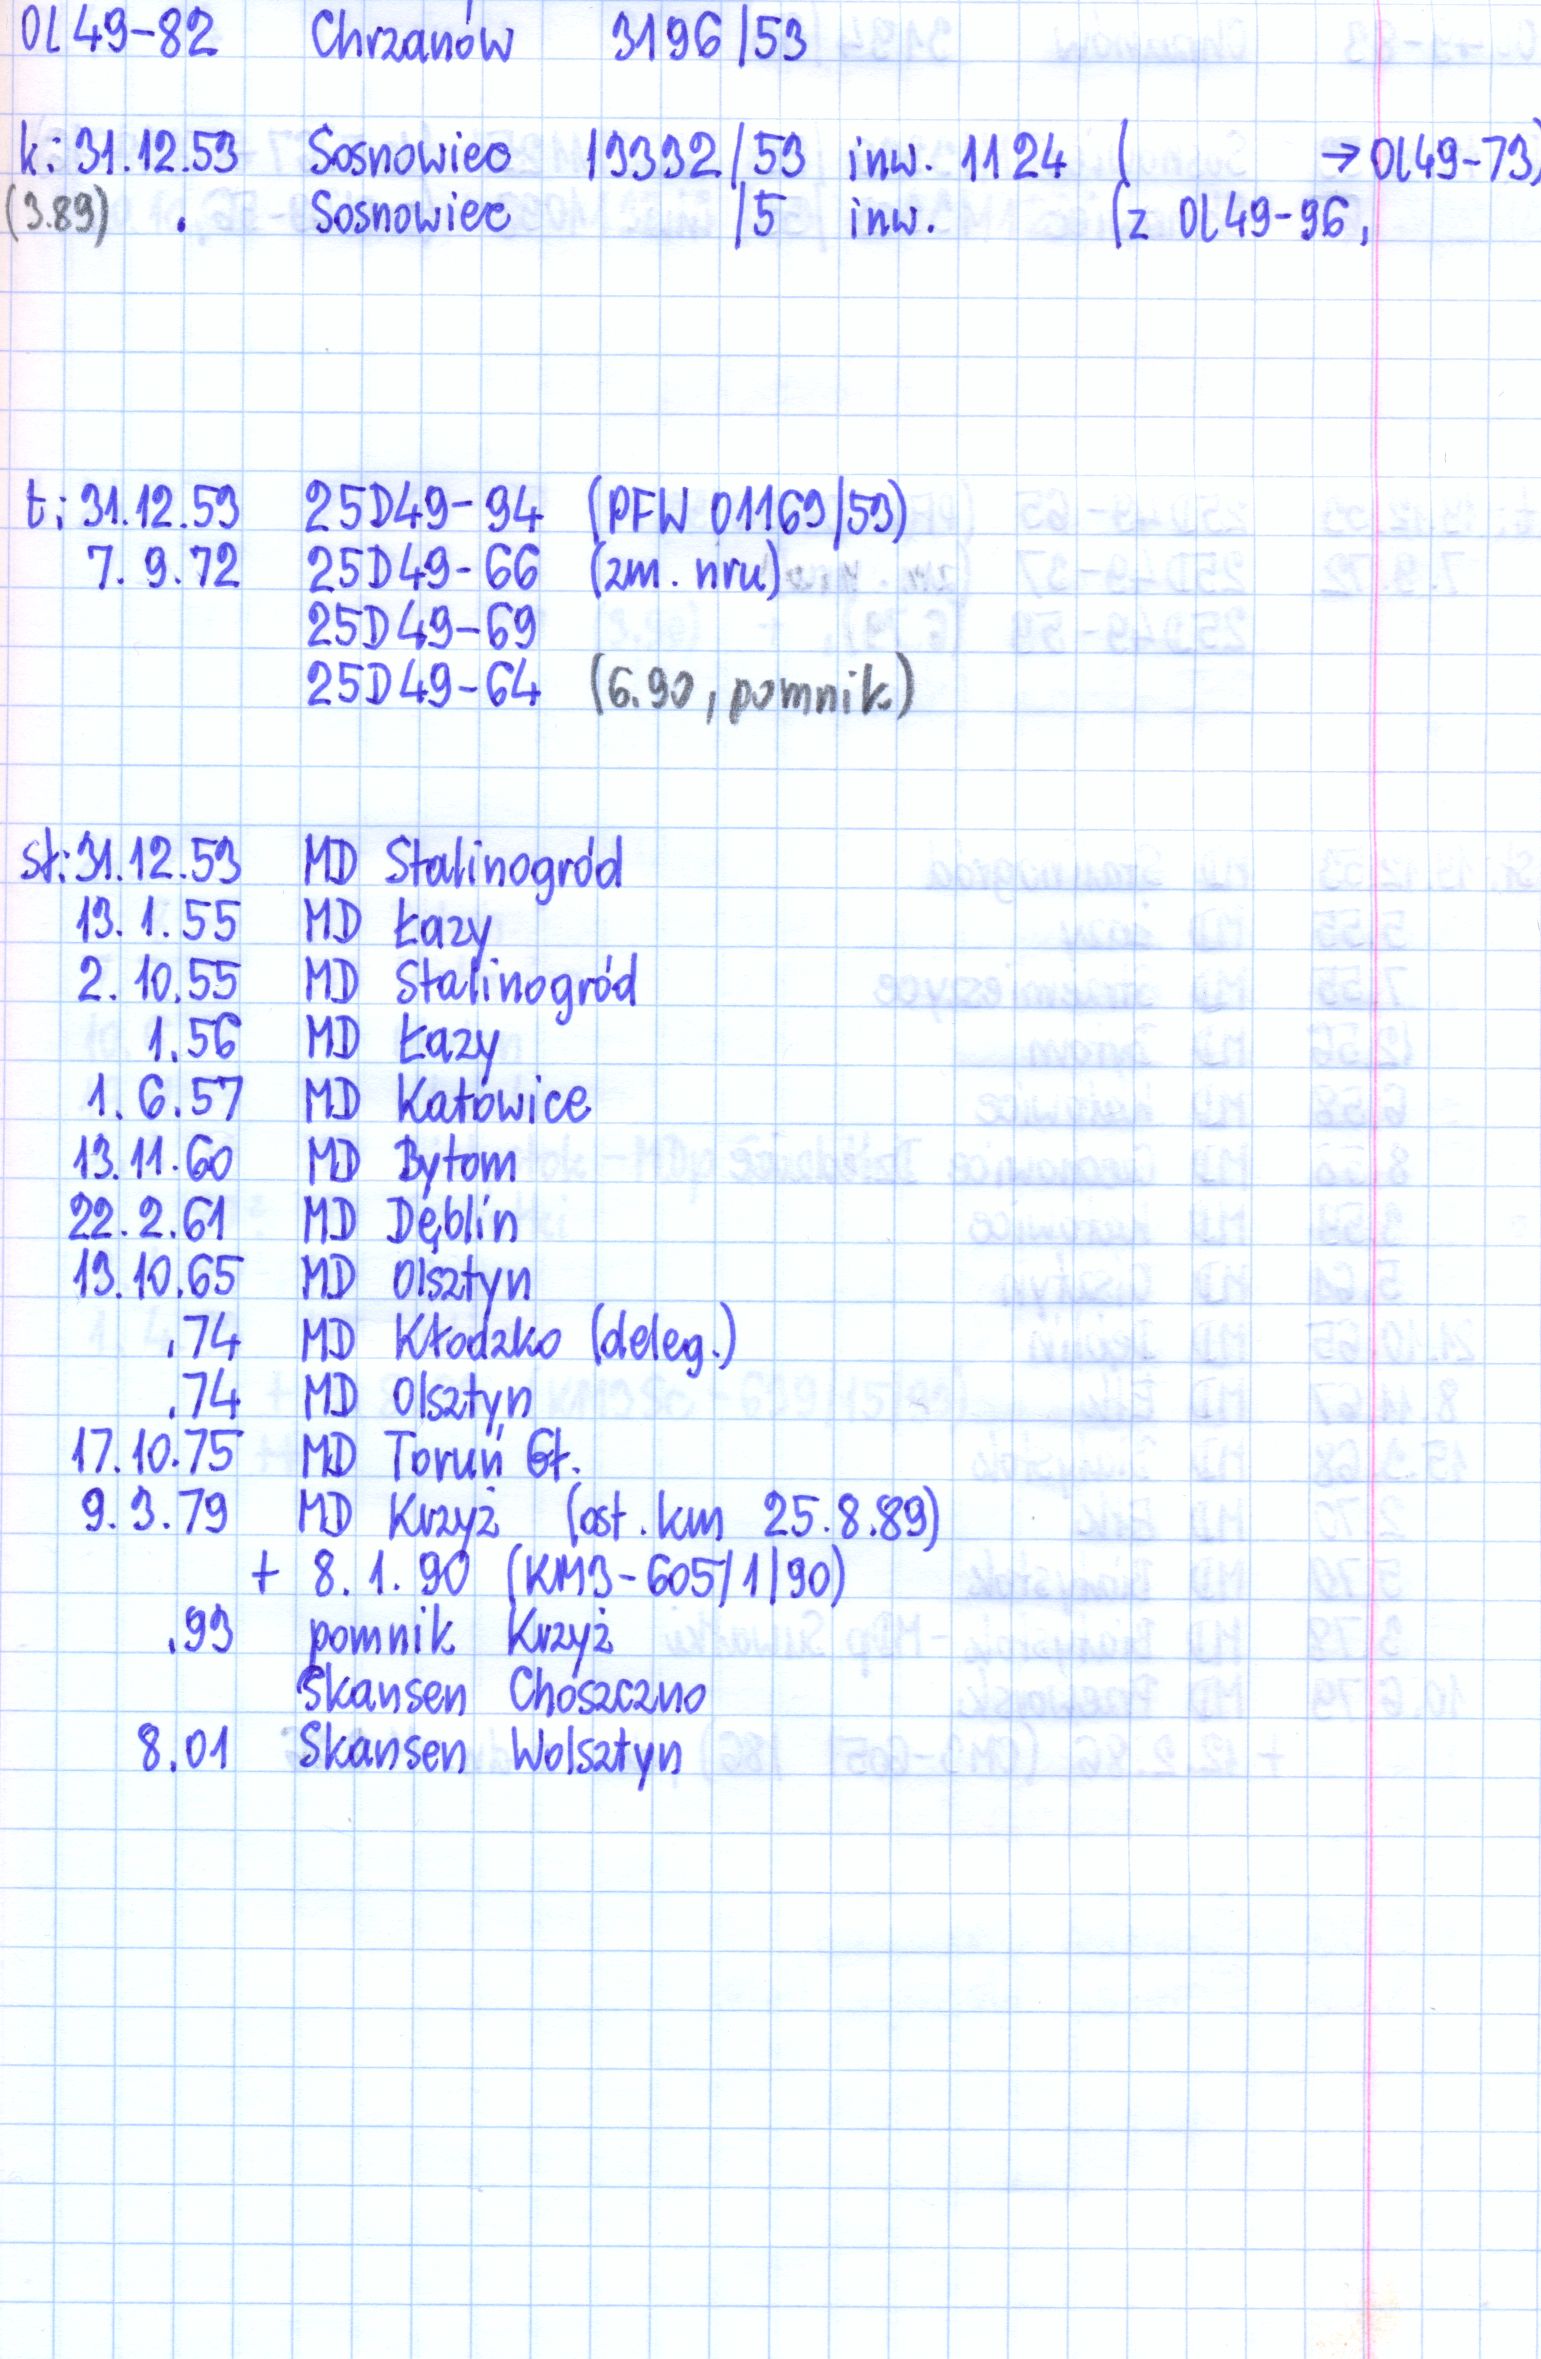 Ol49-82 Chrzanów 3196/53
k: 31.12.53 Sosnowiec 19332/53 inw. 1124 ( → Ol49-73)
(3.89) . Sosnowiec /5 inw. (z Ol49-96,
t: 31.12.53 25D49-94 (PFW 01169/53)
7.9.72 25D49-66 (zm. nru)
25D49-69
25D49-64 (6.90, pomnik)
st: 31.12.53 MD Stalinogród
13.1.55 MD Łazy
2.10.55 MD Stalinogród
1.56 MD Łazy
1.6.57 MD Katowice
13.11.60 MD Bytom
22.2.61 MD Dęblin
13.10.65 MD Olsztyn
.74 MD Kłodzko (deleg.)
.74 MD Olsztyn
17.10.75 MD Toruń Gł.
9.3.79 MD Krzyż (ost. km 25.8.89)
+ 8.1.90 (KM3-605/1/90)
.93 pomnik Krzyż
Skansen Choszczno
8.01 Skansen Wolsztyn